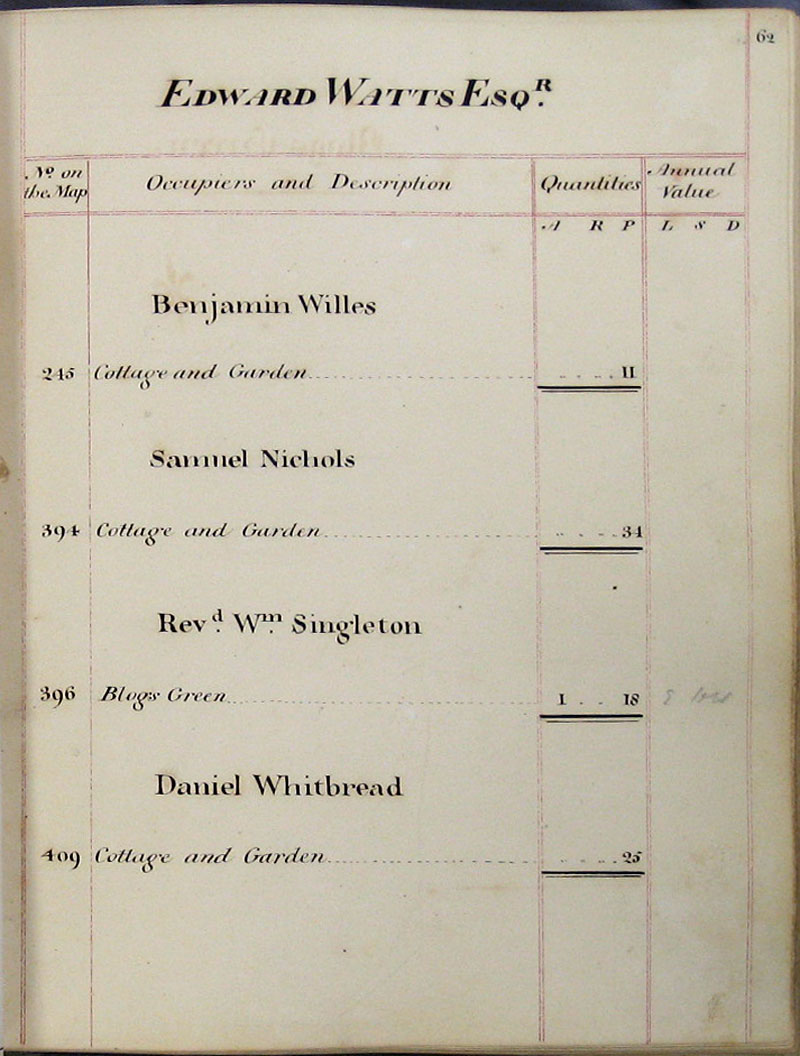 62
EDWARD WATTS ESQR.
No on the Map Occupiers and Description Quantities Annual Value
A R P L S D
Benjamin Willes
245 Cottage and Garden 11
Samuel Nichols
394 Cottage and Garden 34
Revd. Wm. Singleton
396 Blogs Green 1 .. 18
Daniel Whitbread
409 Cottage and Garden 25